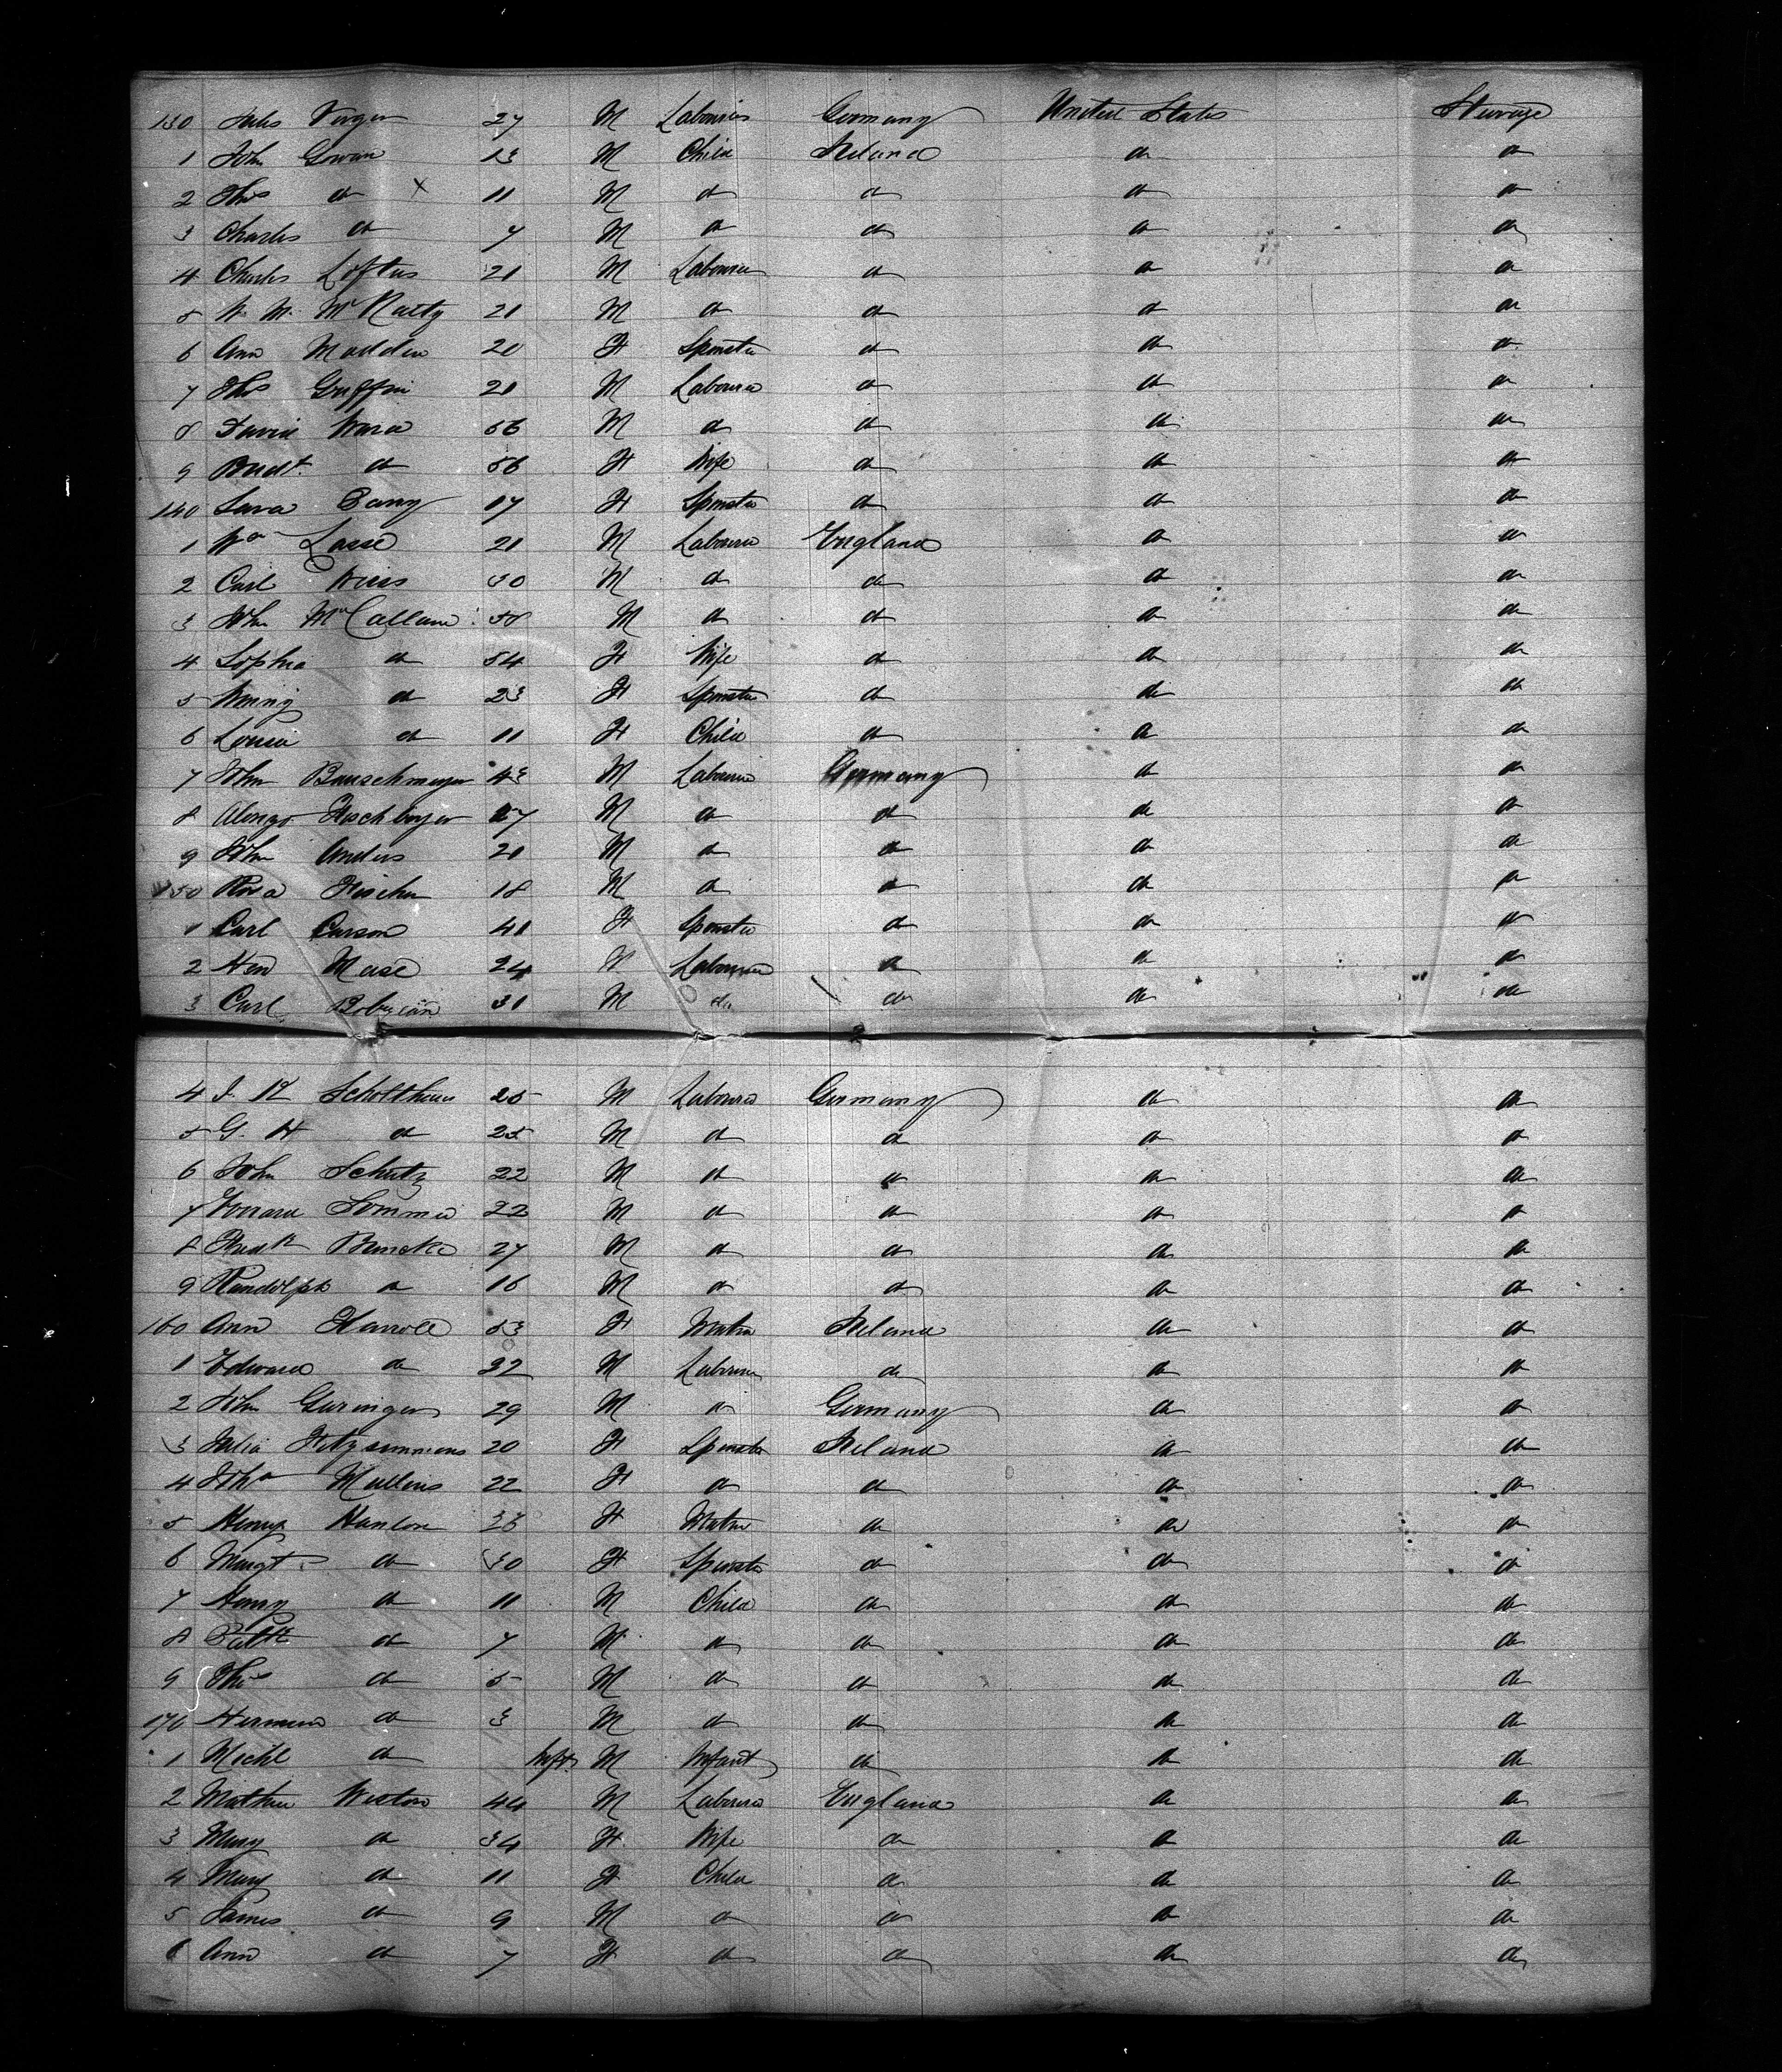 130 Jules Verger 27 M Labourer Germany United States Steerage
1 John Gowan 13 M Child Ireland do do
2 Thos do x 11 M do do do do
3 Charles do 7 M do do do do
4 Charles Loftus 21 M Labourer do do do
5 W. M. McNalty 21 M do do do do
6 Ann Madden 20 F Spinster do do do
7 Thos Griffin 21 M Labourer do do do
8 David Ward 56 M do do do do
9 Bridt. do 56 F Wife do do do
140 Sara Barry 17 F Spinster do do do
1 Wm Lasse 21 M Labourer England do do
2 Carl Weiss 30 M do do do do
3 John McCallam 58 M do do do do
4 Sophia do 54 F Wife do do do
5 do 23 F Spinster do do do
6 Louisa do 11 F Child do do do
7 John Bauschmeyer 43 M Labourer Germany do do
8 Alonzo Hischboyer 27 M do do do do
9 John Anders 21 M do do do do
150 Rosa Fischer 18 M do do do do
1 Carl Carson 41 F Spinster do do do
2 Hen Mase 24 M Labourer do do do
3 Carl 31 M do do do do
4 J. H Scholthaus 25 M Labourer Germany do do
5 G. H do 25 M do do do do
6 John Schutz 22 M do do do do
7 Edward Sommer 22 M do do do do
8 Fredk Bencke 27 M do do do do
9 Randolph do 16 M do do do do
160 Ann Harrold 53 F Matron Ireland do do
1 Edward do 32 M Labourer do do do
2 John Geringer 29 M do Germany do do
3 Julia Fitzsimmons 20 F Spinster Ireland do do
4 Joha Mullins 22 F do do do do
5 Henry Hanlon 36 F Matron do do do
6 Margt. do 30 F Spinster do do do
7 Henry do 11 M Child do do do
8 Patk do 7 M do do do do
9 Thos do 5 M do do do do
170 Herman do 3 M do do do do
1 Michl do Inft. M Infant do do do
2 Mathew Weston 44 M Labourer England do do
3 Mary do 34 F Wife do do do
4 Mary do 11 F Child do do do
5 James do 9 M do do do do
6 Ann do 7 F do do do do